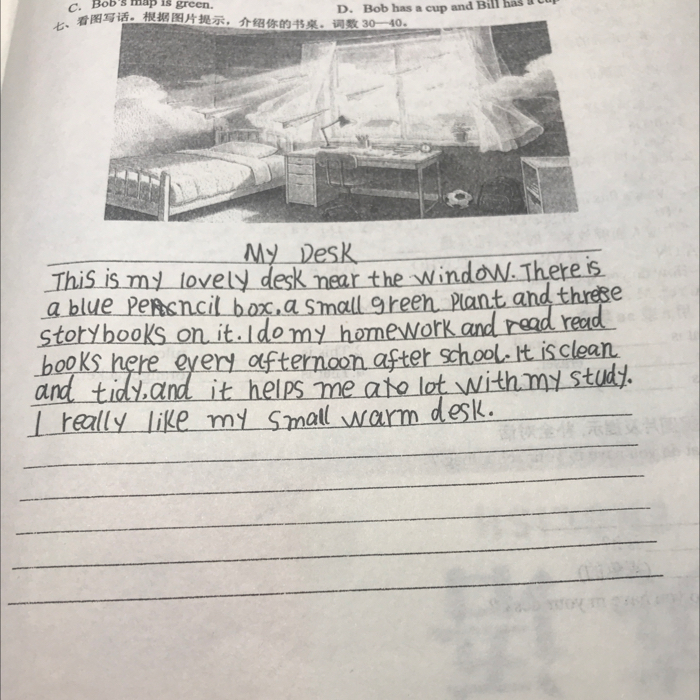 C. Bob's map is green.
D. Bob has a cup and Bill has a cup
七、看图写话。根据图片提示，介绍你的书桌。词数 30—40。
My Desk
This is my lovely desk near the window. There is
a blue pencil box, a small green plant and three
storybooks on it. I do my homework and read
books here every afternoon after school. It is clean
and tidy, and it helps me a lot with my study.
I really like my small warm desk.